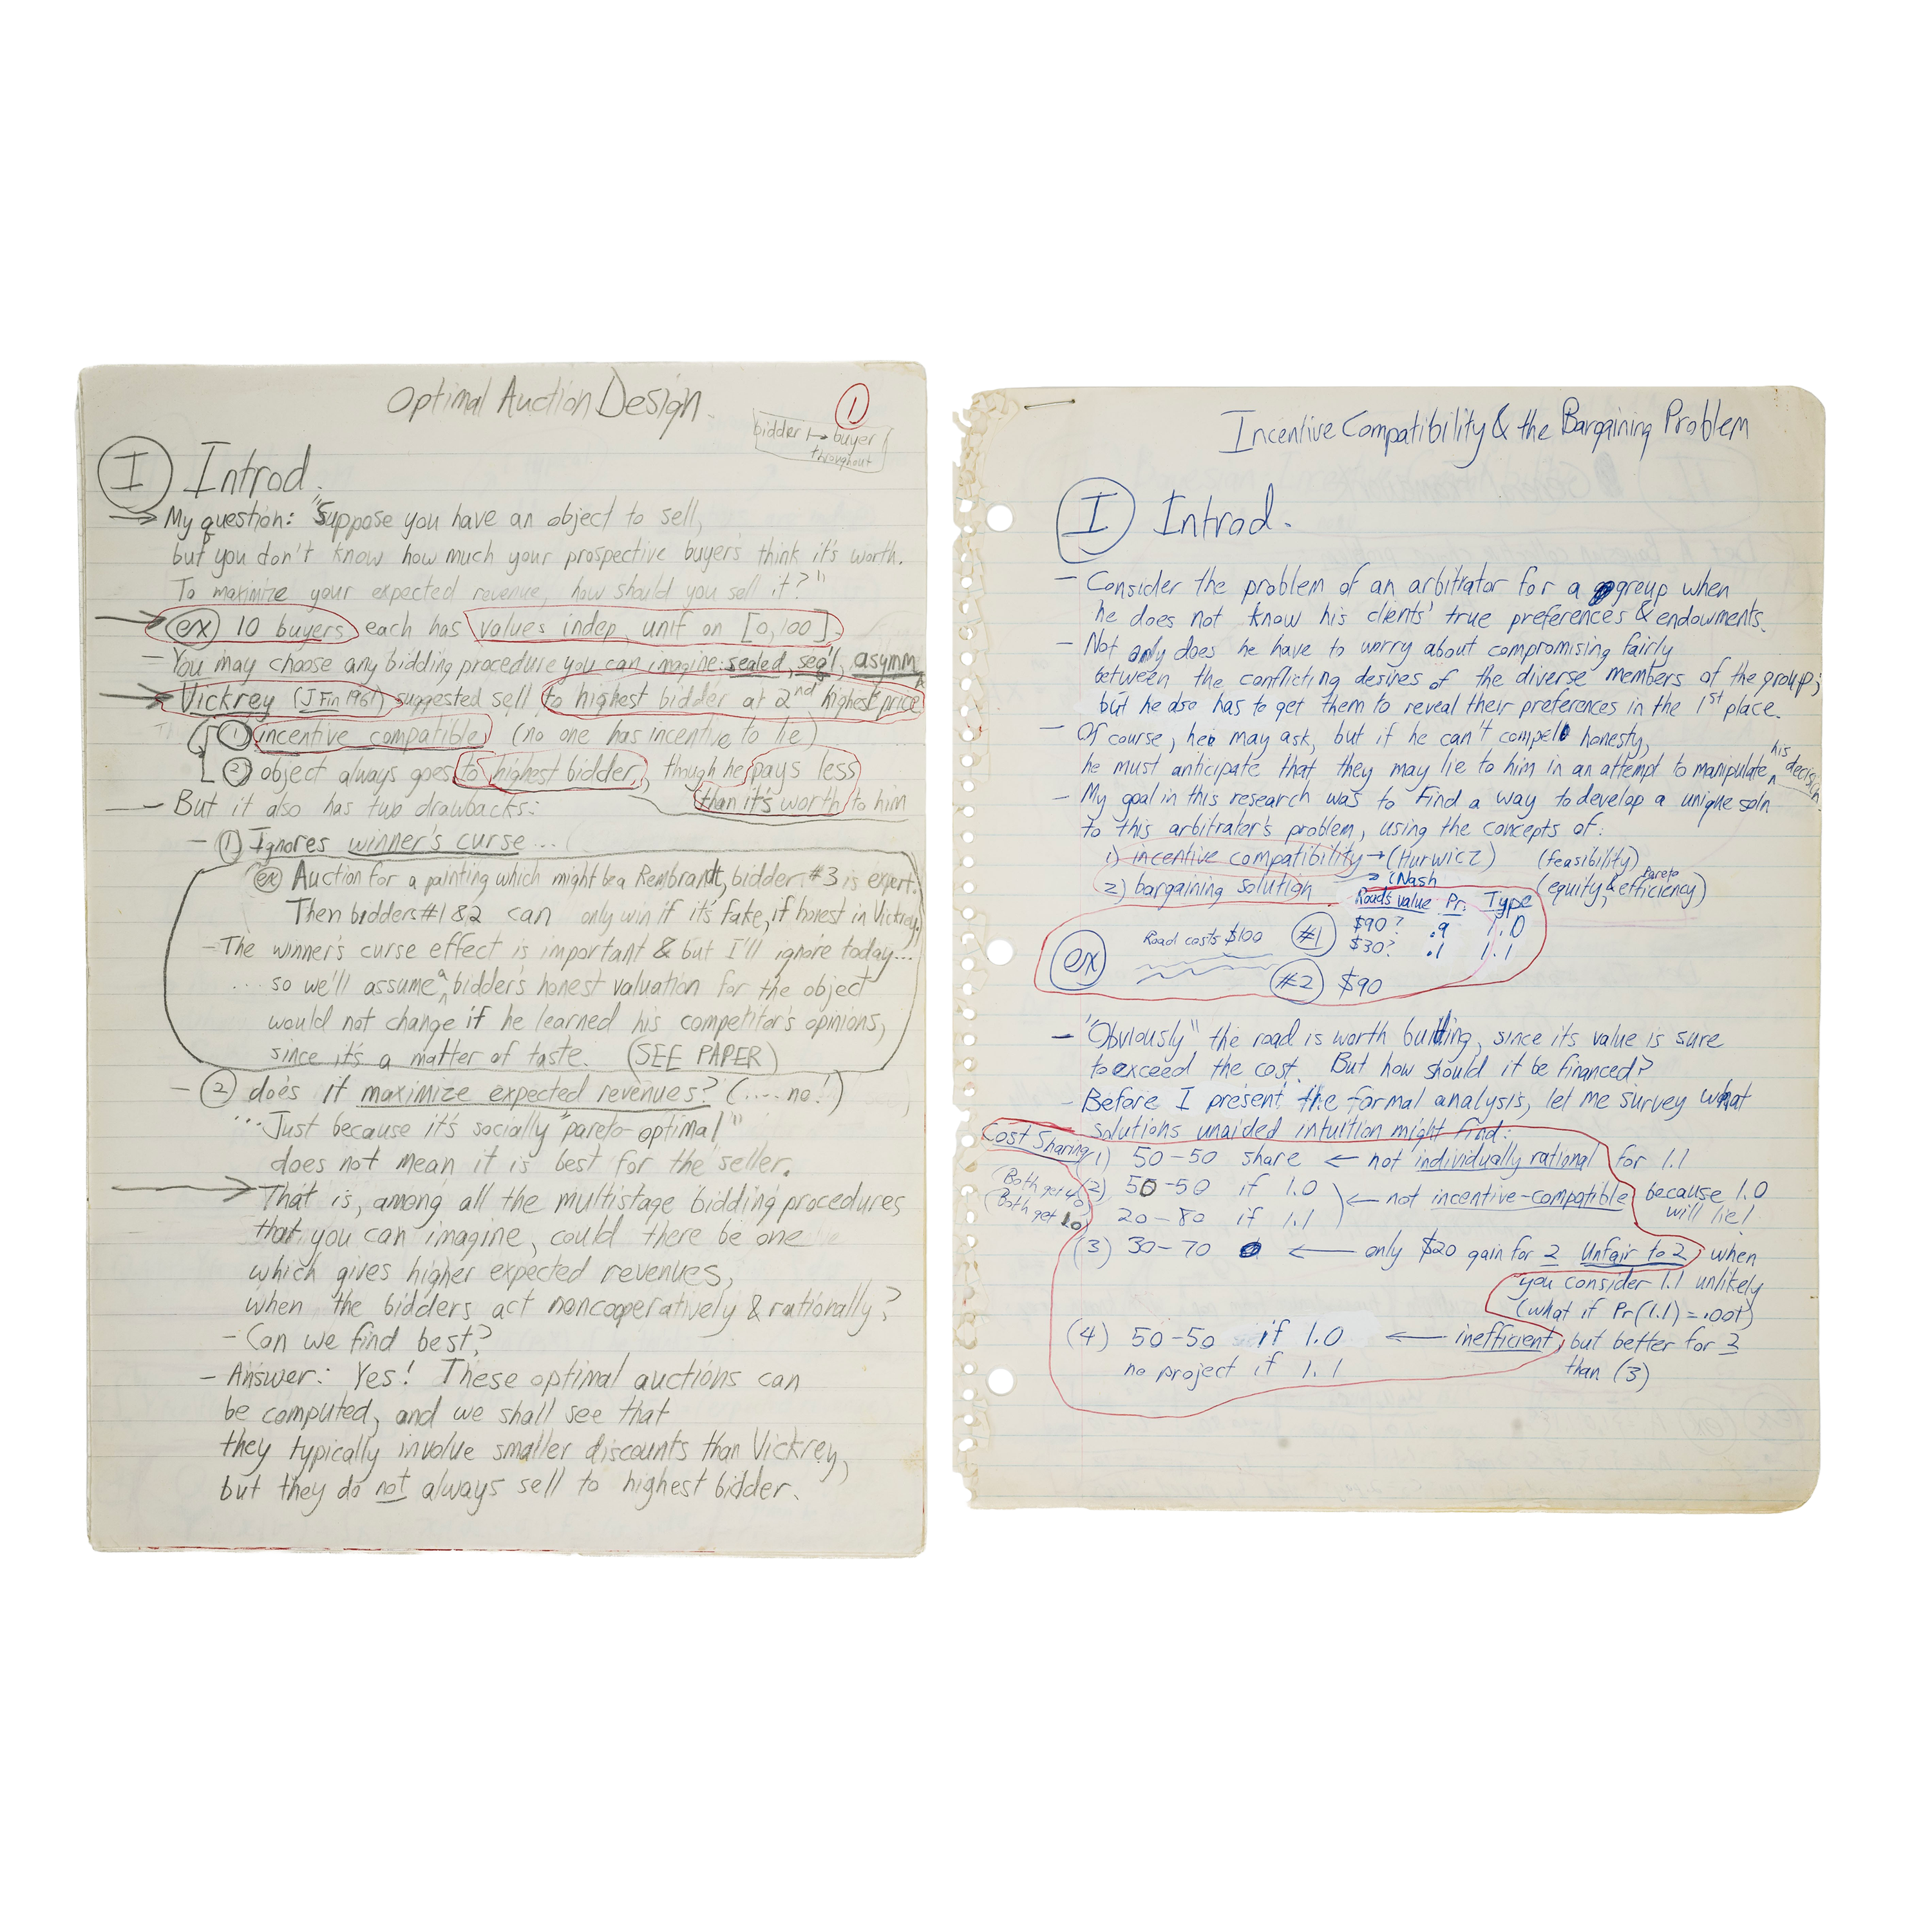 Optimal Auction Design.
①
bidder ↦ buyer
throughout
Ⓘ Introd.
→ My question: "Suppose you have an object to sell,
but you don't know how much your prospective buyers think it's worth.
To maximize your expected revenue, how should you sell it?"
→ (ex) 10 buyers each has values indep. unif on [0,100].
– You may choose any bidding procedure you can imagine: sealed, seq'l, asymm
→ Vickrey (J Fin 1961) suggested sell to highest bidder at 2nd highest price
① incentive compatible (no one has incentive to lie)
② object always goes to highest bidder, though he pays less
than it's worth to him
– But it also has two drawbacks:
– ① Ignores winner's curse...
(ex) Auction for a painting which might be a Rembrandt, bidder #3 is expert.
Then bidders #1&2 can only win if it's fake, if honest in Vickrey.
– The winner's curse effect is important & but I'll ignore today...
... so we'll assume a bidder's honest valuation for the object
would not change if he learned his competitor's opinions,
since it's a matter of taste. (SEE PAPER)
– ② does it maximize expected revenues? (.... no!)
...Just because it's socially "pareto-optimal"
does not mean it is best for the seller.
→ That is, among all the multistage bidding procedures
that you can imagine, could there be one
which gives higher expected revenues,
when the bidders act noncooperatively & rationally?
– Can we find best?
– Answer: Yes! These optimal auctions can
be computed, and we shall see that
they typically involve smaller discounts than Vickrey,
but they do not always sell to highest bidder.
Incentive Compatibility & the Bargaining Problem
Ⓘ Introd.
– Consider the problem of an arbitrator for a group when
he does not know his clients' true preferences & endowments.
– Not only does he have to worry about compromising fairly
between the conflicting desires of the diverse members of the group;
but he also has to get them to reveal their preferences in the 1st place.
– Of course, he may ask, but if he can't compel honesty,
he must anticipate that they may lie to him in an attempt to manipulate his decision.
– My goal in this research was to find a way to develop a unique soln
to this arbitrator's problem, using the concepts of:
1) incentive compatibility → (Hurwicz) (feasibility)
2) bargaining solution → (Nash (equity & Pareto efficiency)
Road's value Pr. Type
(ex) Road costs $100 #1 $90? .9 1.0
$30? .1 1.1
#2 $90
– "Obviously" the road is worth building, since its value is sure
to exceed the cost. But how should it be financed?
– Before I present the formal analysis, let me survey what
solutions unaided intuition might find:
Cost Sharing
1) 50–50 share ← not individually rational for 1.1
(Both get 40 (2) 50–50 if 1.0 ) ← not incentive-compatible because 1.0
(Both get 10 20–80 if 1.1 will lie!
(3) 30–70 ← only $20 gain for 2 Unfair to 2 when
you consider 1.1 unlikely
(what if Pr(1.1) = .001)
(4) 50–50 if 1.0 ← inefficient, but better for 2
no project if 1.1 than (3)